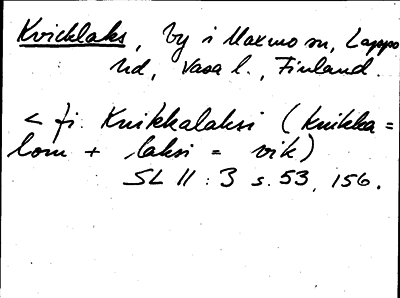 Kvicklaks, by i Maxmo sn, Lappo
hd, Vasa l., Finland.
< fi. Kuikkalaksi (kuikka =
lom + laksi = vik)
SL II : 3 s. 53, 156.